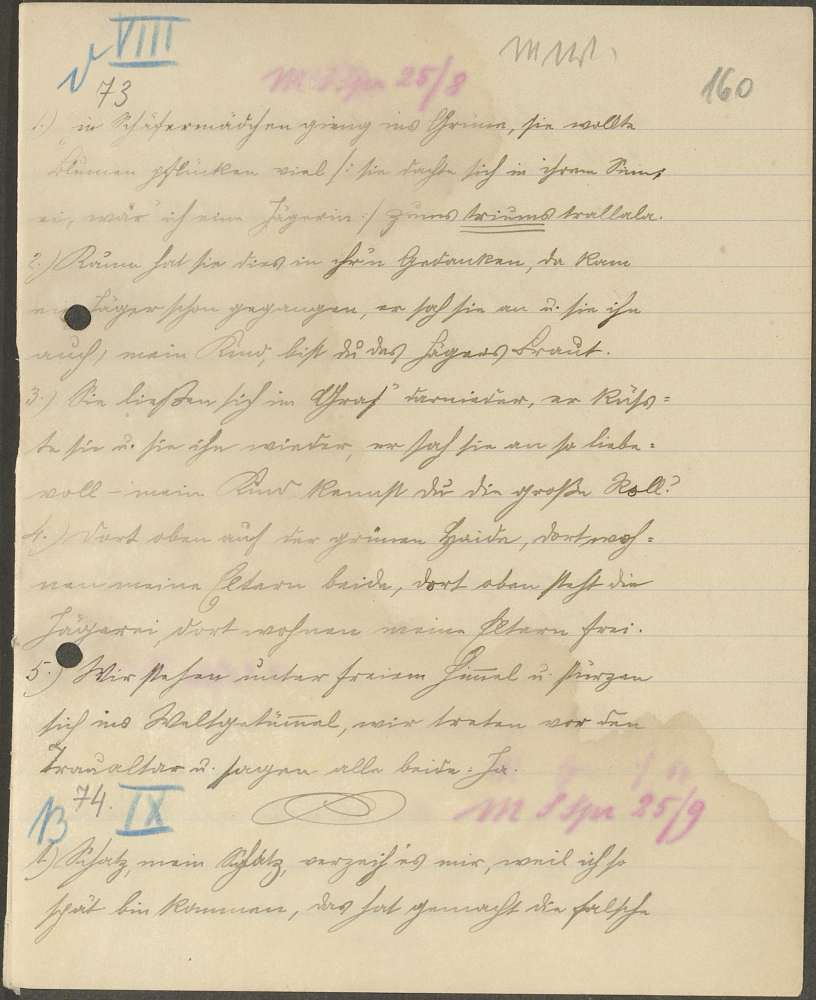 VIII
73
160
1.) in Schäfermädchen gieng ins Grüne, sie wollte
Blumen pflücken viel /: sie dachte sich in ihrem Sinn,
ei, wär' ich eine Jägerin :/ zums triums trallala.
2.) Kaum hat sie dies in ihr'n Gedanken, da kam
ein Jäger schon gegangen, er sah sie an u. sie ihn
auch, mein Kind, bist du des Jägers Braut.
3.) Sie ließen sich im Gras' darnieder, er küß=
te sie u. sie ihn wieder, er sah sie an so liebe=
voll – mein Kind kennst du die große Roll?
4.) Dort oben auf der grünen Haide, dort woh=
nen meine Eltern beide, dort oben steht die
Jägerei dort wohnen meine Eltern frei.
5.) Wir stehen unter freiem Himmel u. stürzen
sich ins Weltgetümmel, wir treten vor den
Traualtar u. sagen alle beide: Ja.
B 74. IX
25/9
1.) Schatz, mein Schatz, verzeih' es mir, weil ich so
spät bin kommen, das hat gemacht die falsche